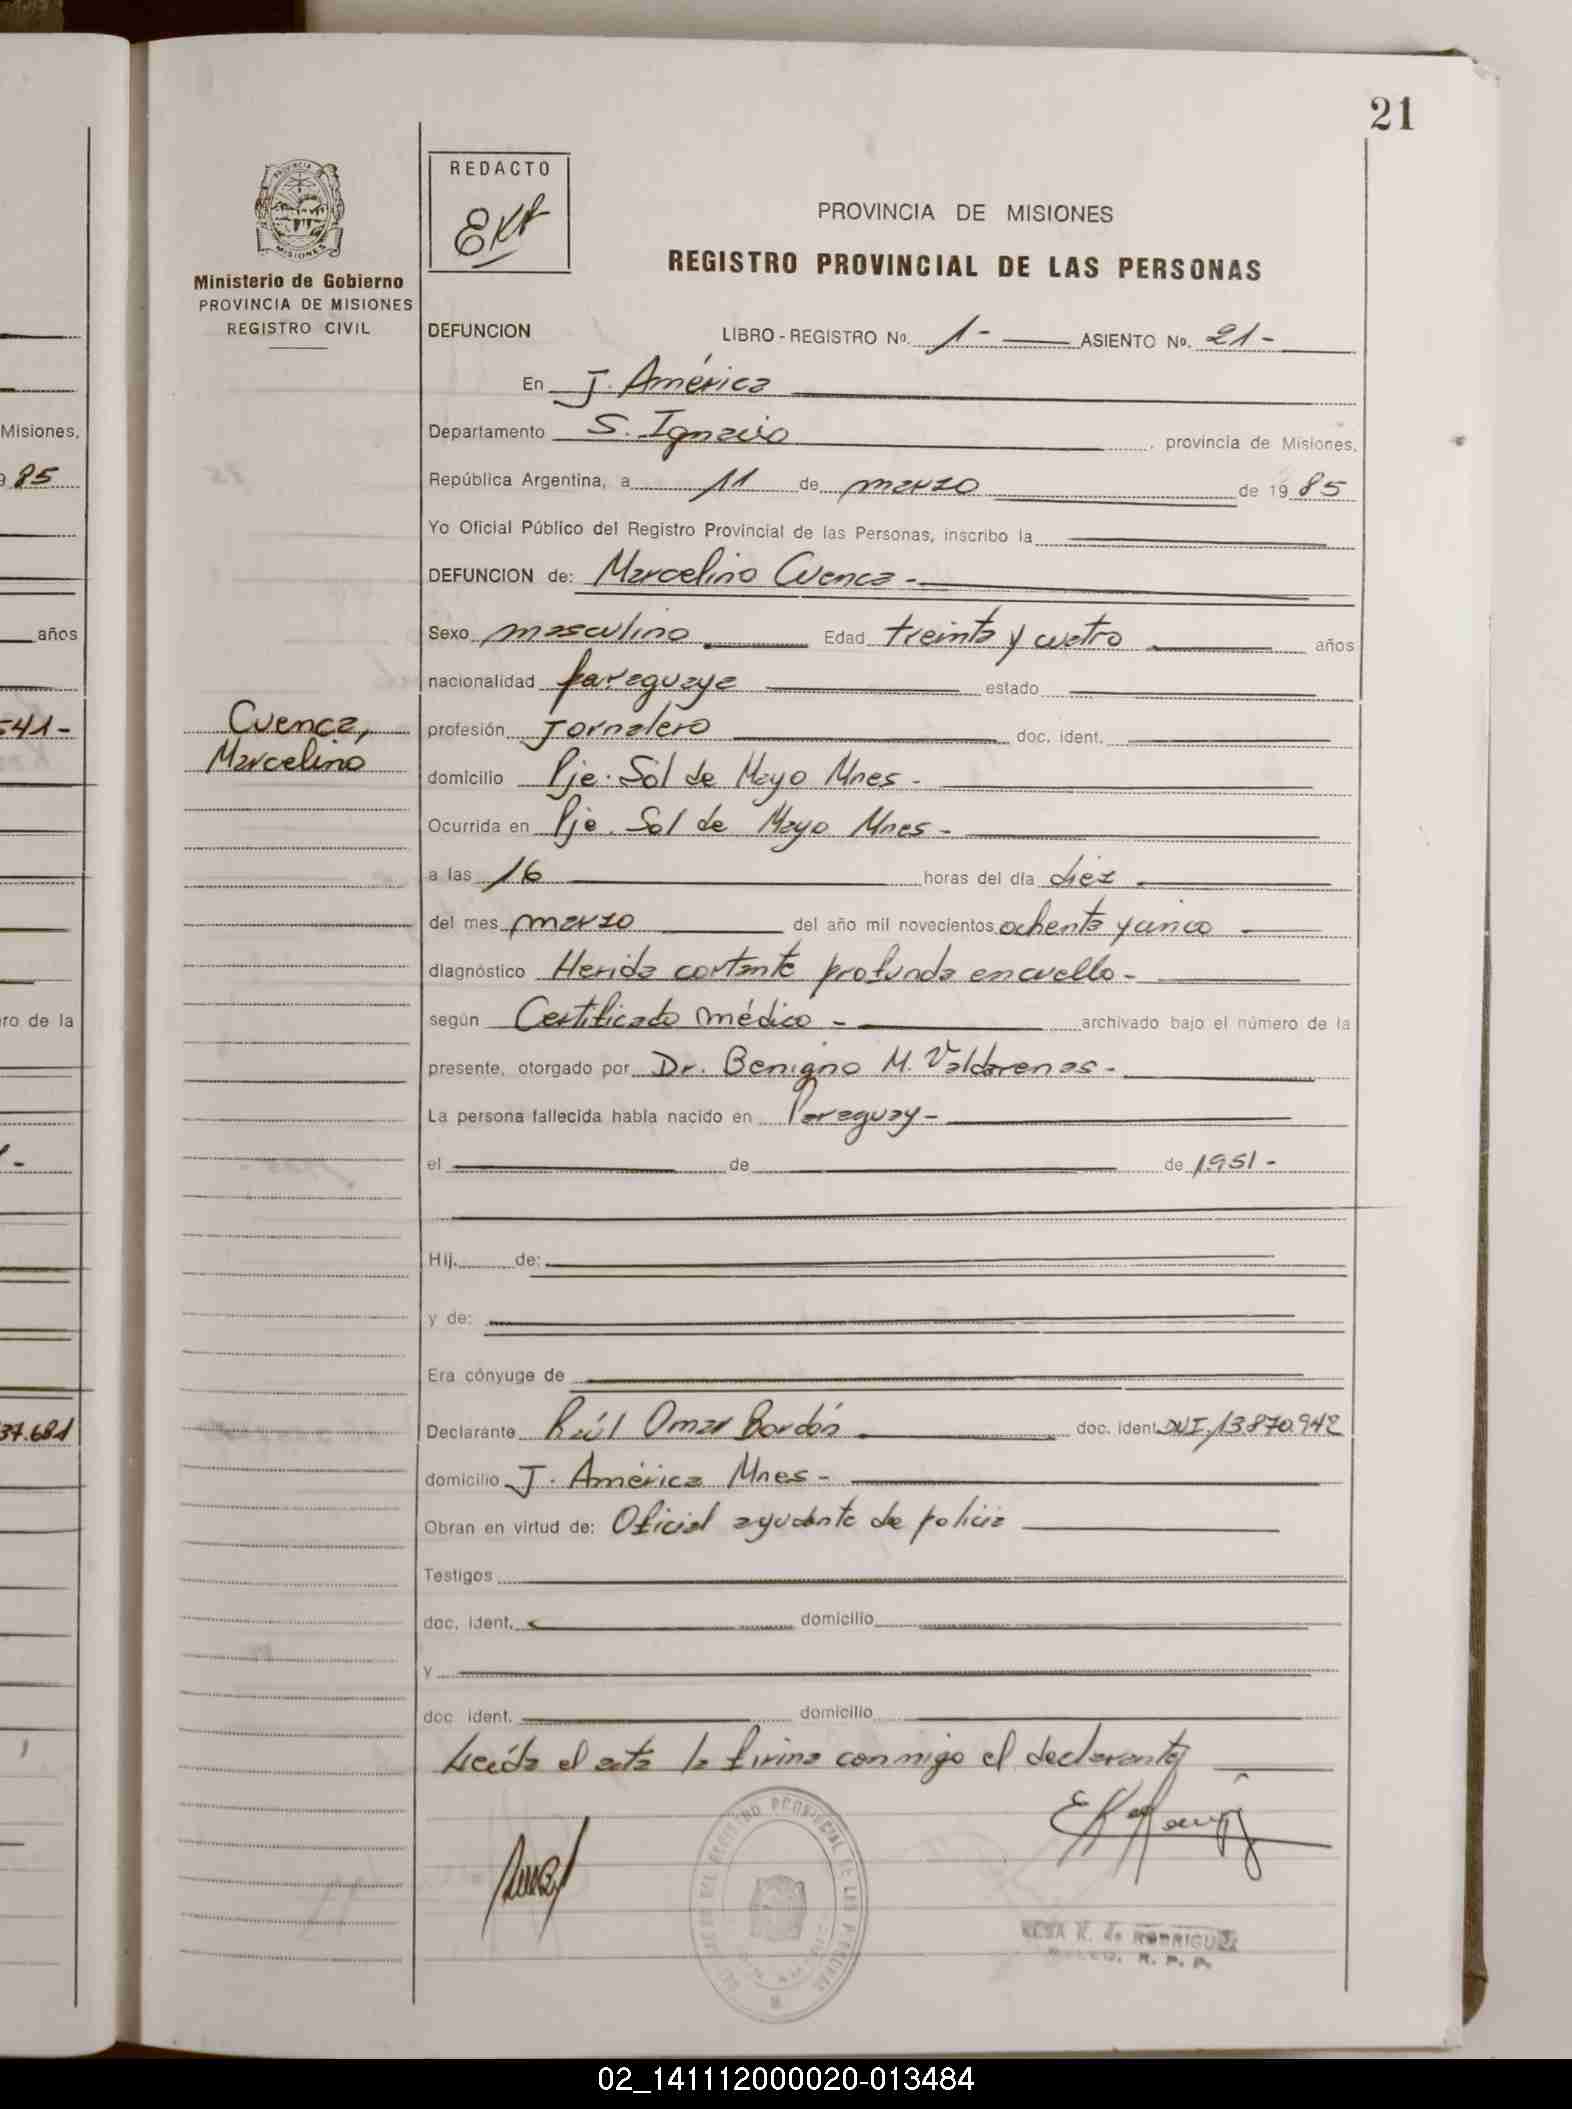 21
REDACTO
PROVINCIA DE MISIONES
REGISTRO PROVINCIAL DE LAS PERSONAS
PROVINCIA
MISIONES
Ministerio de Gobierno
PROVINCIA DE MISIONES
REGISTRO CIVIL
DEFUNCION LIBRO - REGISTRO Nº. 1- ASIENTO Nº. 21-
En J. América
Departamento S. Ignacio, provincia de Misiones,
República Argentina, a 11 de marzo de 1985
Yo Oficial Público del Registro Provincial de las Personas, inscribo la
DEFUNCION de: Marcelino Cuenca -
Sexo masculino Edad treinta y cuatro años
nacionalidad paraguaya estado
Cuenca,
Marcelino
profesión Jornalero doc. ident.
domicilio Pje. Sol de Mayo Mnes -
Ocurrida en Pje. Sol de Mayo Mnes -
a las 16 horas del día diez
del mes marzo del año mil novecientos ochenta y cinco
diagnóstico Herida cortante profunda en cuello -
según Certificado médico - archivado bajo el número de la
presente, otorgado por Dr. Benigno M. Valdarenas -
La persona fallecida había nacido en Paraguay -
el de de 1951 -
Hij. de:
y de:
Era cónyuge de
Declarante Raúl Omar Bordón doc. ident DNI. 13.870.942
domicilio J. América Mnes -
Obran en virtud de: Oficial ayudante de policia
Testigos
doc. ident. domicilio
y
doc. ident. domicilio
Leída el acta la firma conmigo el declarante
K. de RODRIGUEZ
R. P. P.
Misiones,
9 85
años
541-
ro de la
37.681
02_141112000020-013484